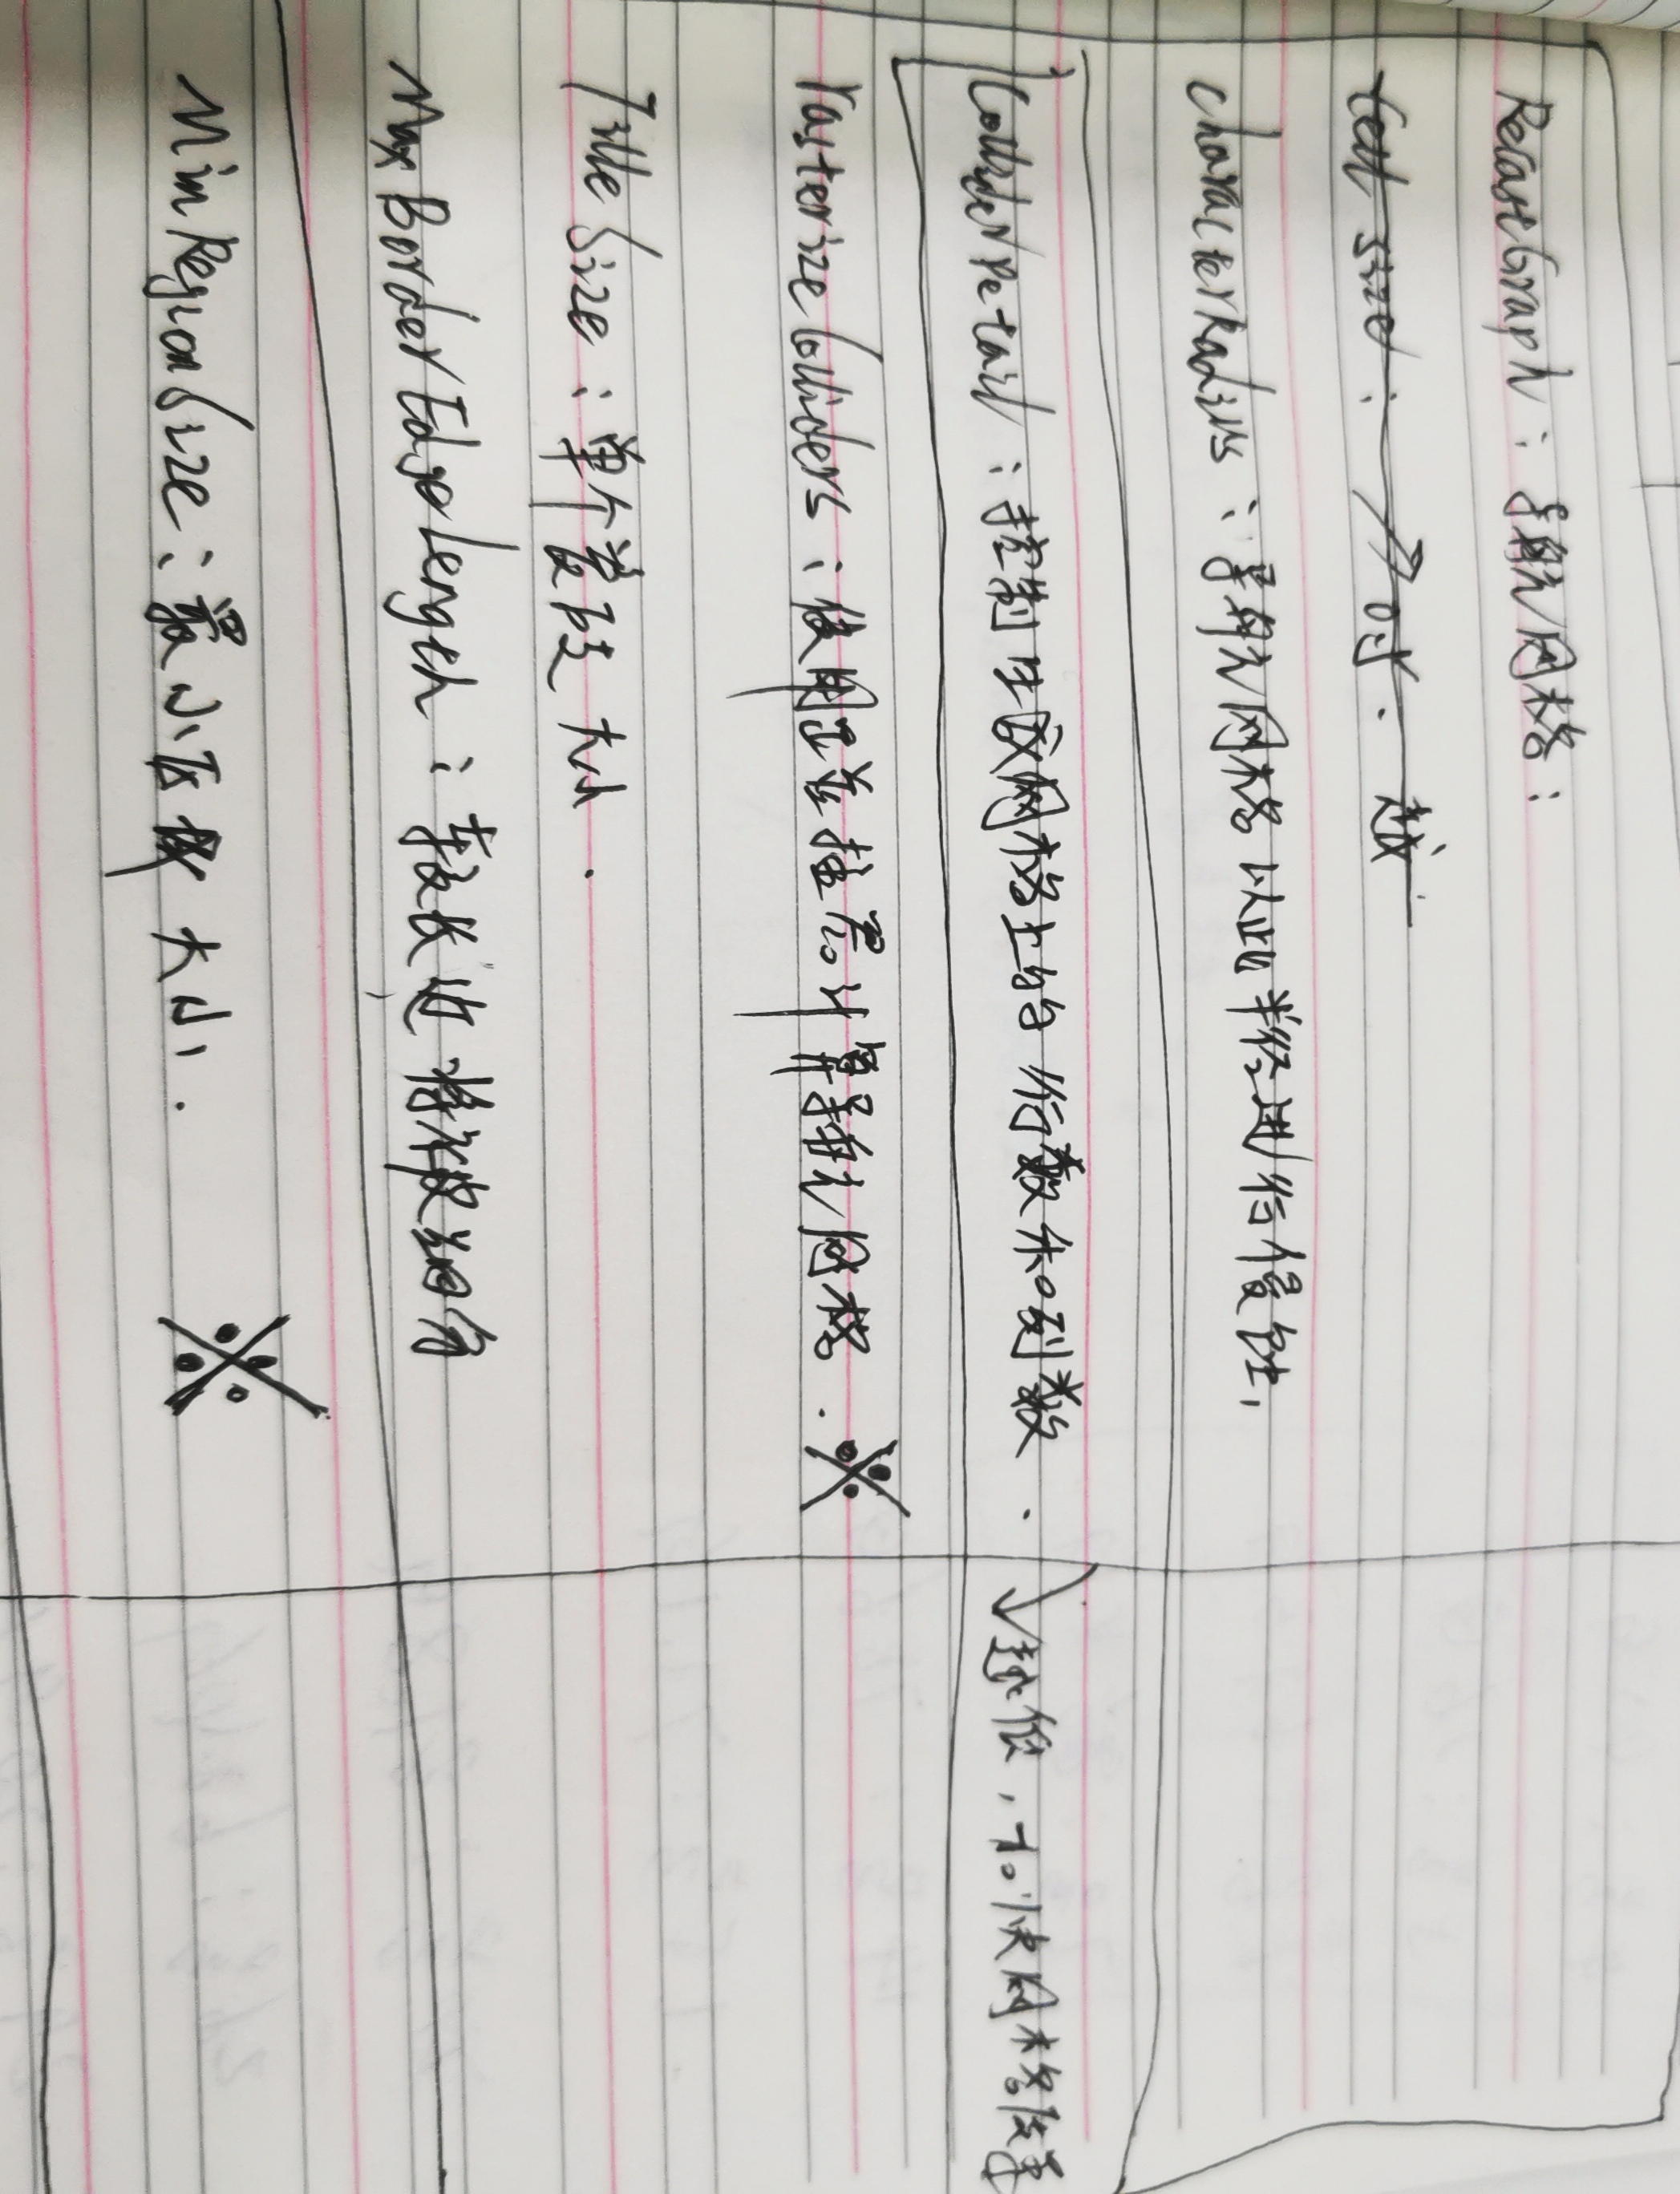 RecastGraph：导航网格：
Cell size：↗时．越
CharacterRadius：导航网格以此半径进行侵蚀，
ColliderDetail：控制生成网格上的行数和列数．↘越低，加快网格
rasterizeColliders：使用 碰撞 计算导航网格．※
TileSize：单个 大小．
MaxBorderEdgeLength：较长边将被细分
MinRegionSize：最小区域大小．※